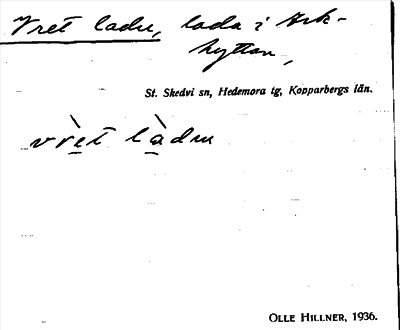 Vret ladu, lada i Ark-
hyttan,
St. Skedvi sn, Hedemora tg, Kopparbergs län.
vrèt làdɯ
OLLE HILLNER, 1936.